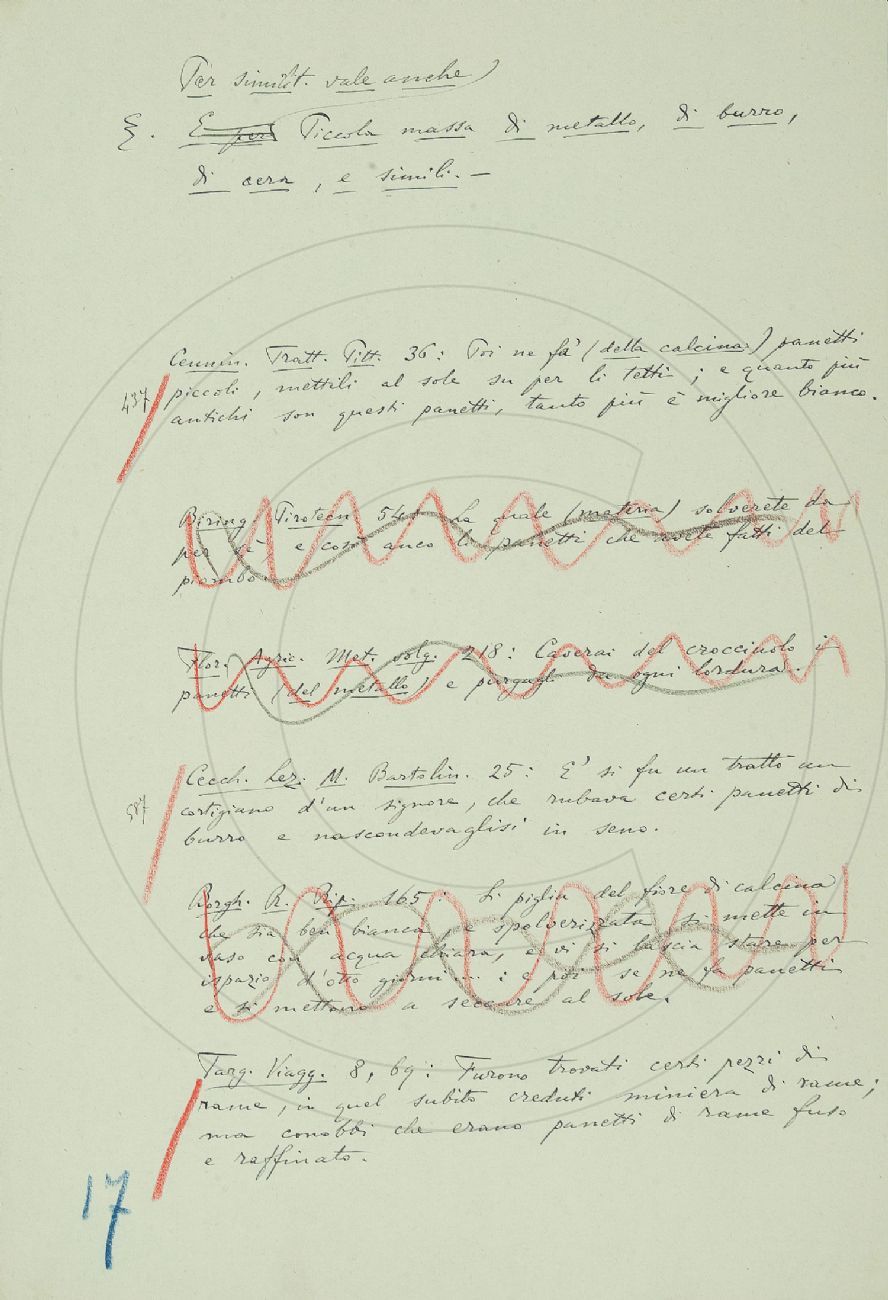 Per similit. vale anche
ξ. E per Piccola massa di metallo, di burro,
di cera, e simili. —
Cennin. Tratt. Pitt. 36: Poi ne fa' (della calcina) panetti
437
piccoli, mettili al sole su per li tetti; e quanto più
antichi son questi panetti, tanto più è migliore bianco.
Biring. Pirotecn. 54: La quale (materia) solverete da
per sè e così anco li panetti che avete fatti del
piombo
Flor. Agric. Met. volg. 218: Caverai del crocciuolo i
panetti (del metallo) e purgagli da ogni lordura.
Cecch. Lez. M. Bartolin. 25: E' si fu un tratto un
587
cortigiano d'un signore, che rubava certi panetti di
burro e nascondevaglisi in seno.
Borgh. R. Rip. 165: Si piglia del fiore di calcina
che sia ben bianca, e spolverizzata si mette in
vaso con acqua chiara, e vi si lascia stare per
ispazio d'otto giorni...: e poi se ne fa panetti
e si mettono a seccare al sole.
Targ. Viagg. 8, 69: Furono trovati certi pezzi di
rame, in quel subito creduti miniera di rame;
ma conobbi che erano panetti di rame fuso
e raffinato.
17